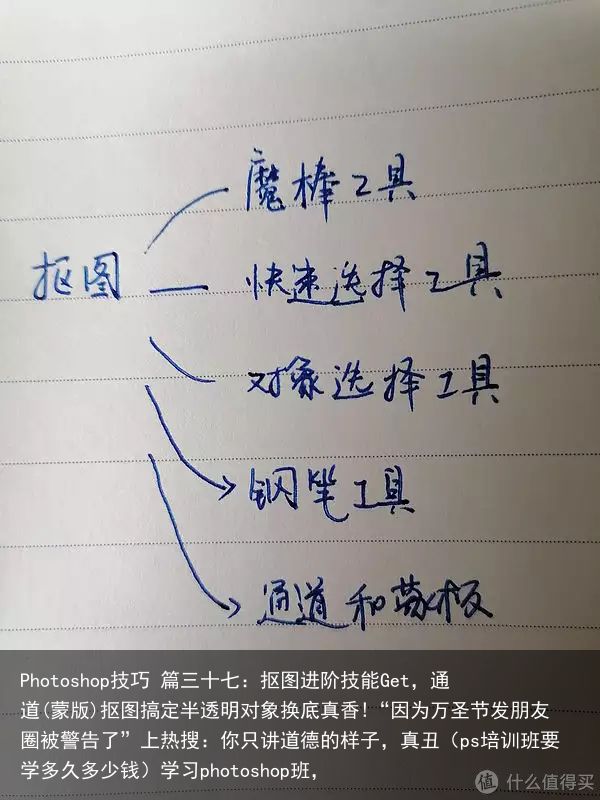 抠图
魔棒工具
快速选择工具
对象选择工具
钢笔工具
通道和蒙板
Photoshop技巧 篇三十七：抠图进阶技能Get，通
道(蒙版)抠图搞定半透明对象换底真香！“因为万圣节发朋友
圈被警告了”上热搜：你只讲道德的样子，真丑（ps培训班要
学多久多少钱）学习photoshop班，
值 什么值得买